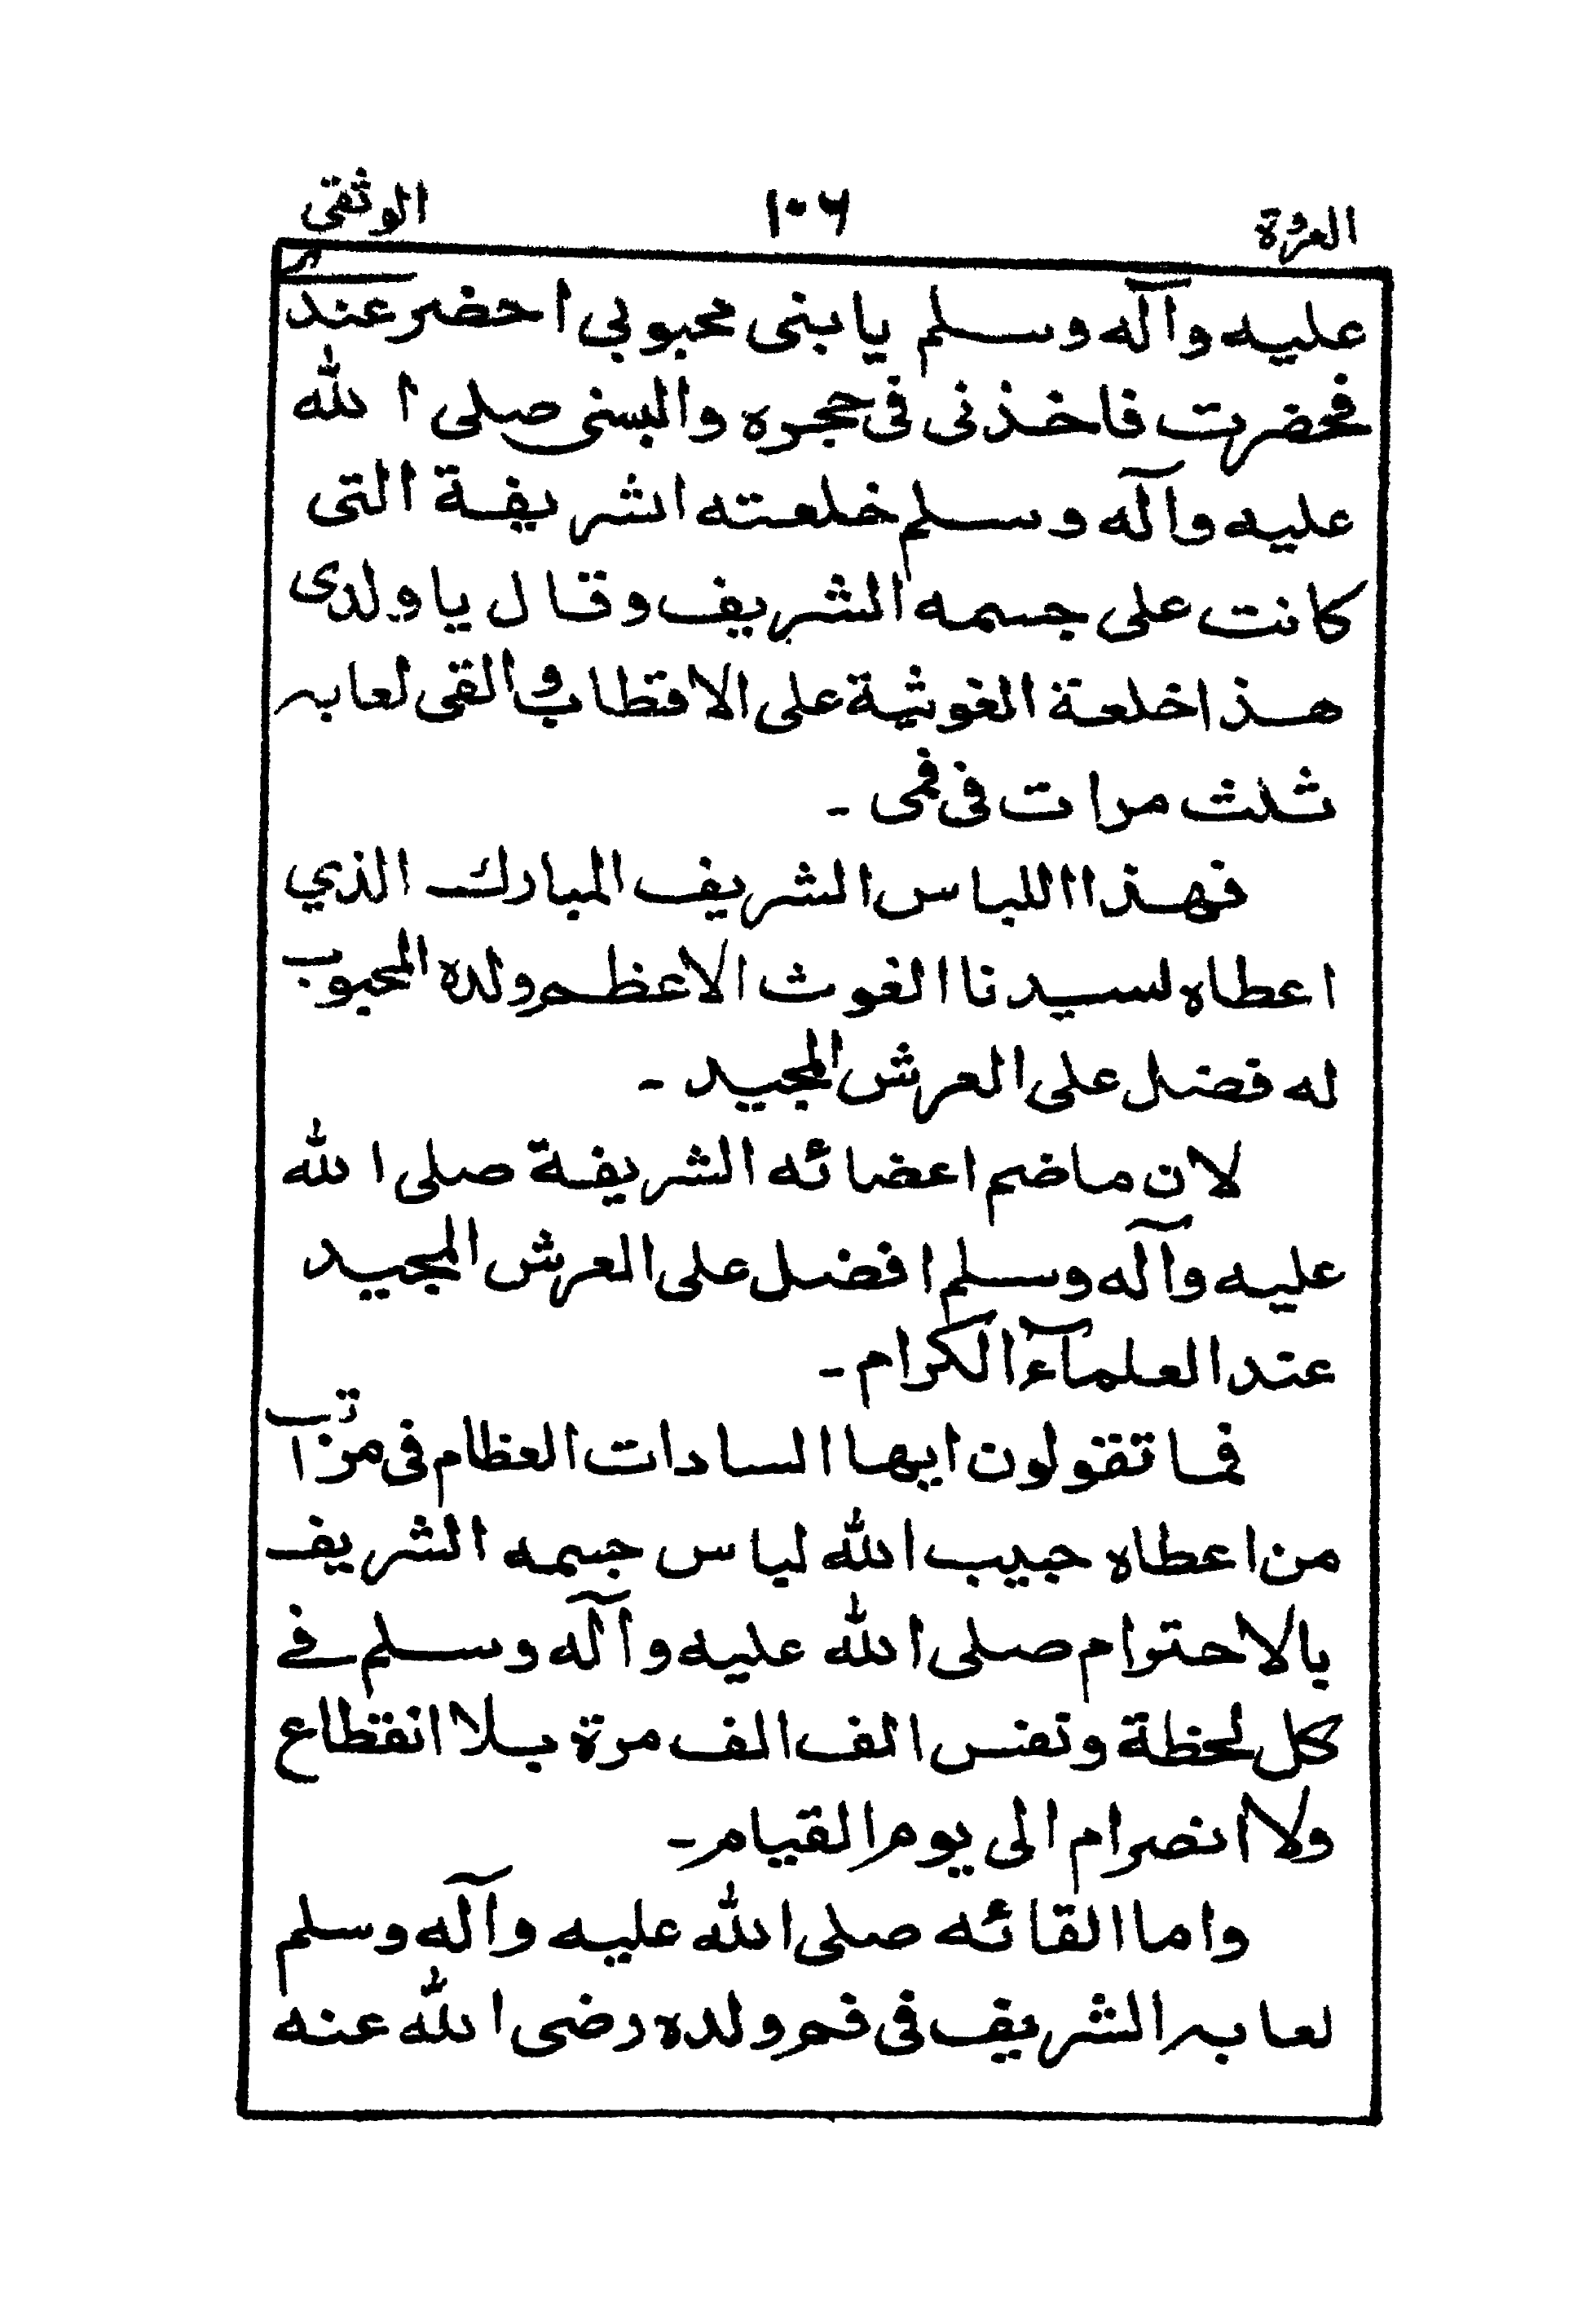 العروة ۱۰۶ الوثقى
عليه وآله وسلم يابنى محبوبي احضر عندى
فحضرت فاخذنى فى حجره والبسنى صلى الله
عليه وآله وسلم خلعته الشريفة التى
كانت على جسمه الشريف وقال ياولدى
هذا خلعة الغوثية على الاقطاب والقى لعابه
ثلث مرات فى فمى -
فهذا اللباس الشريف المبارك الذي
اعطاه لسيدنا الغوث الاعظم ولده المحبوب
له فضل على العرش المجيد -
لان ماضم اعضائه الشريفة صلى الله
عليه وآله وسلم افضل على العرش المجيد
عند العلمآء الكرام -
فما تقولون ايها السادات العظام فى مراتب
من اعطاه حبيب الله لباس جسمه الشريف
بالاحترام صلى الله عليه وآله وسلم فے
كل لحظة ونفس الف الف مرة بلا انقطاع
ولا انصرام الى يوم القيام -
واما القائه صلى الله عليه وآله وسلم
لعابه الشريف فى فم ولده رضى الله عنه